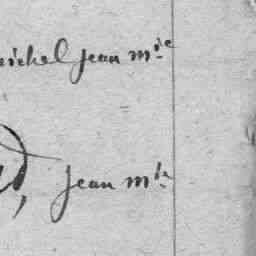 michel jean m.ie
jean m.ie